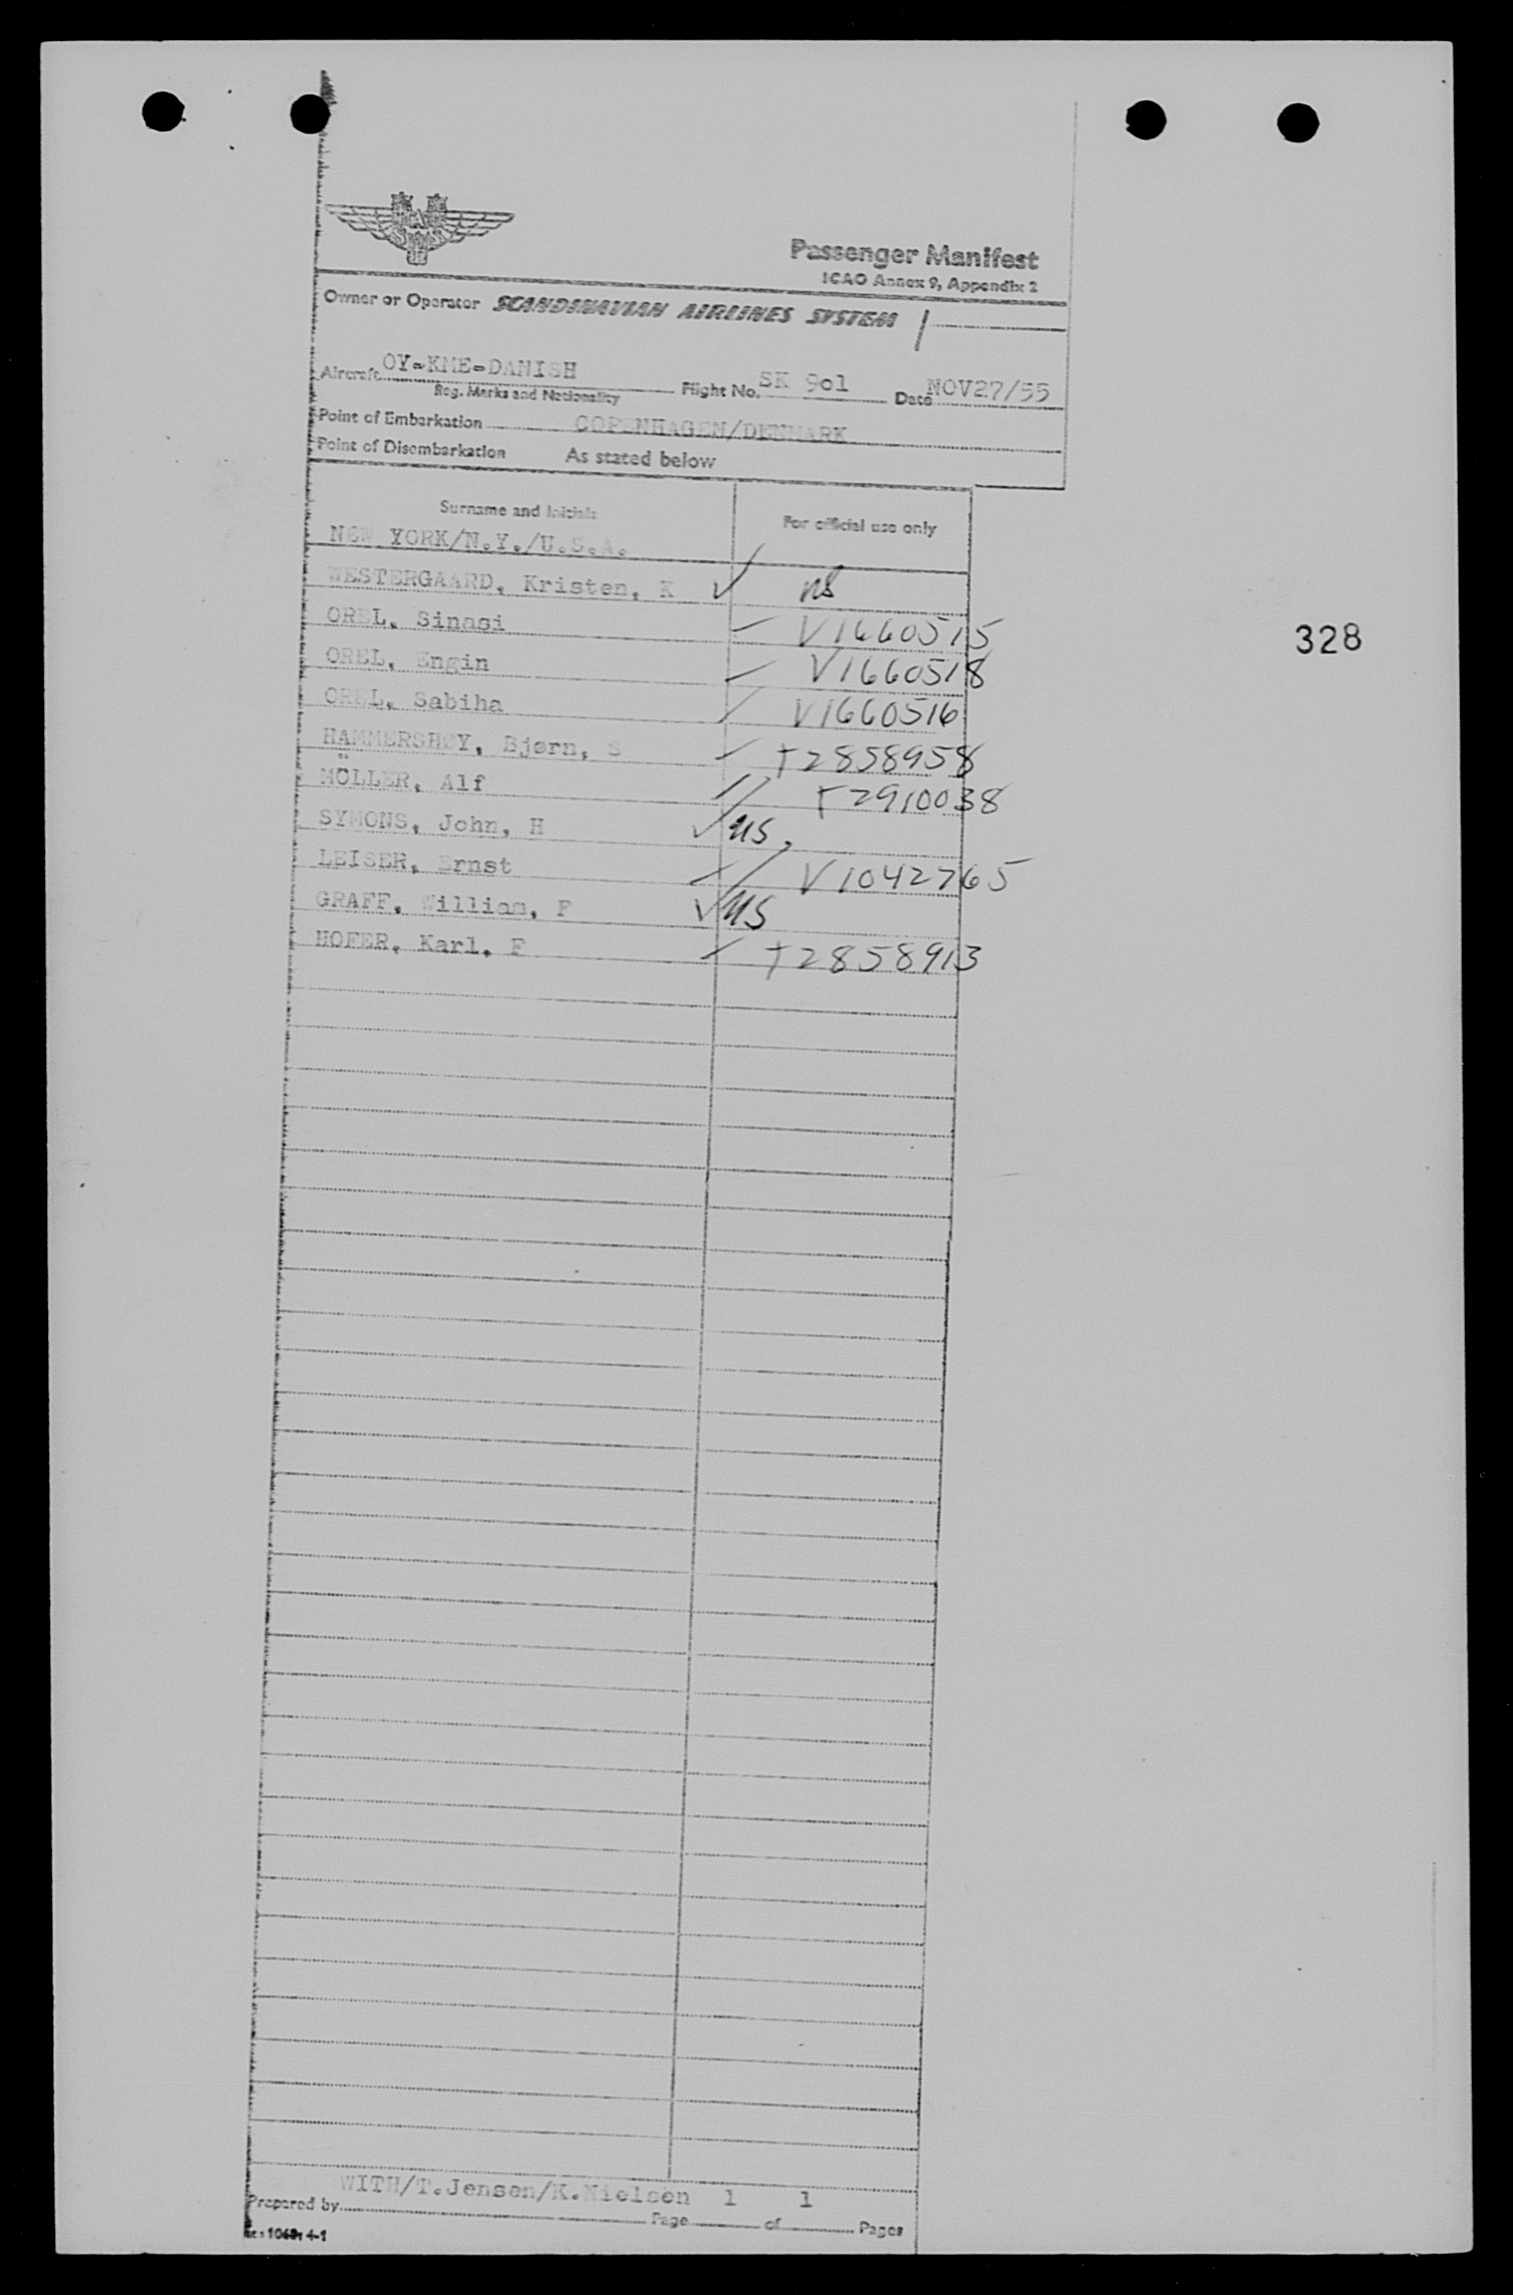 SAS
Passenger Manifest
ICAO Annex 9, Appendix 2
Owner or Operator SCANDINAVIAN AIRLINES SYSTEM /
Aircraft OY-KME-DANISH Flight No. SK 9o1 Date NOV27/55
Reg. Marks and Nationality
Point of Embarkation COPENHAGEN/DENMARK
Point of Disembarkation As stated below
Surname and Initials For official use only
NEW YORK/N.Y./U.S.A.
WESTERGAARD, Kristen, K ✓ US
OREL, Sinasi V1660515
OREL, Engin V1660518
OREL, Sabiha V1660516
HAMMERSHØY, Bjørn, S T2858958
MÖLLER, Alf T2910038
SYMONS, John, H ✓ US.
LEISER, Ernst V1042765
GRAFF, William, F ✓ US
HOFER, Karl, F T2858913
328
WITH/T.Jensen/K.Nielsen 1 1
Prepared by Page of Pages
4-1